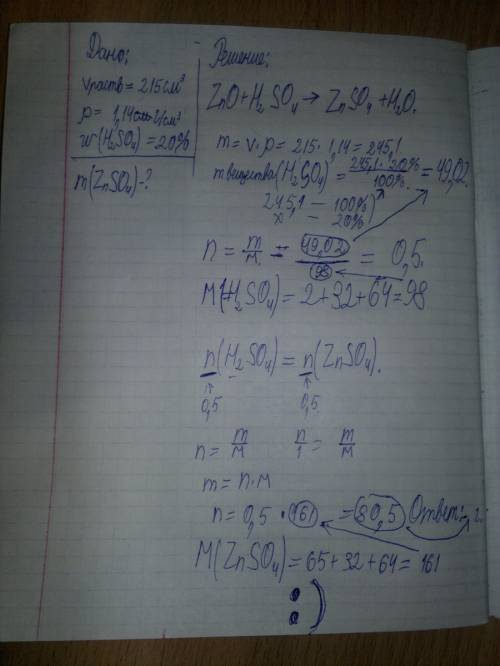 Дано:
Vраств = 215 см³
ρ = 1,14 г/см³
w(H₂SO₄) = 20%
m(ZnSO₄) - ?
Решение:
ZnO + H₂SO₄ → ZnSO₄ + H₂O.
m = V · ρ = 215 · 1,14 = 245,1.
m вещества (H₂SO₄) = 245,1 · 20% / 100% = 49,02.
245,1 – 100%
x – 20%
n = m/M = 49,02 / 98 = 0,5.
M(H₂SO₄) = 2 + 32 + 64 = 98
n(H₂SO₄) = n(ZnSO₄).
0,5 0,5
n = m/M n/1 = m/M
m = n · M
n = 0,5 · 161 = 80,5 Ответ:
M(ZnSO₄) = 65 + 32 + 64 = 161
:)